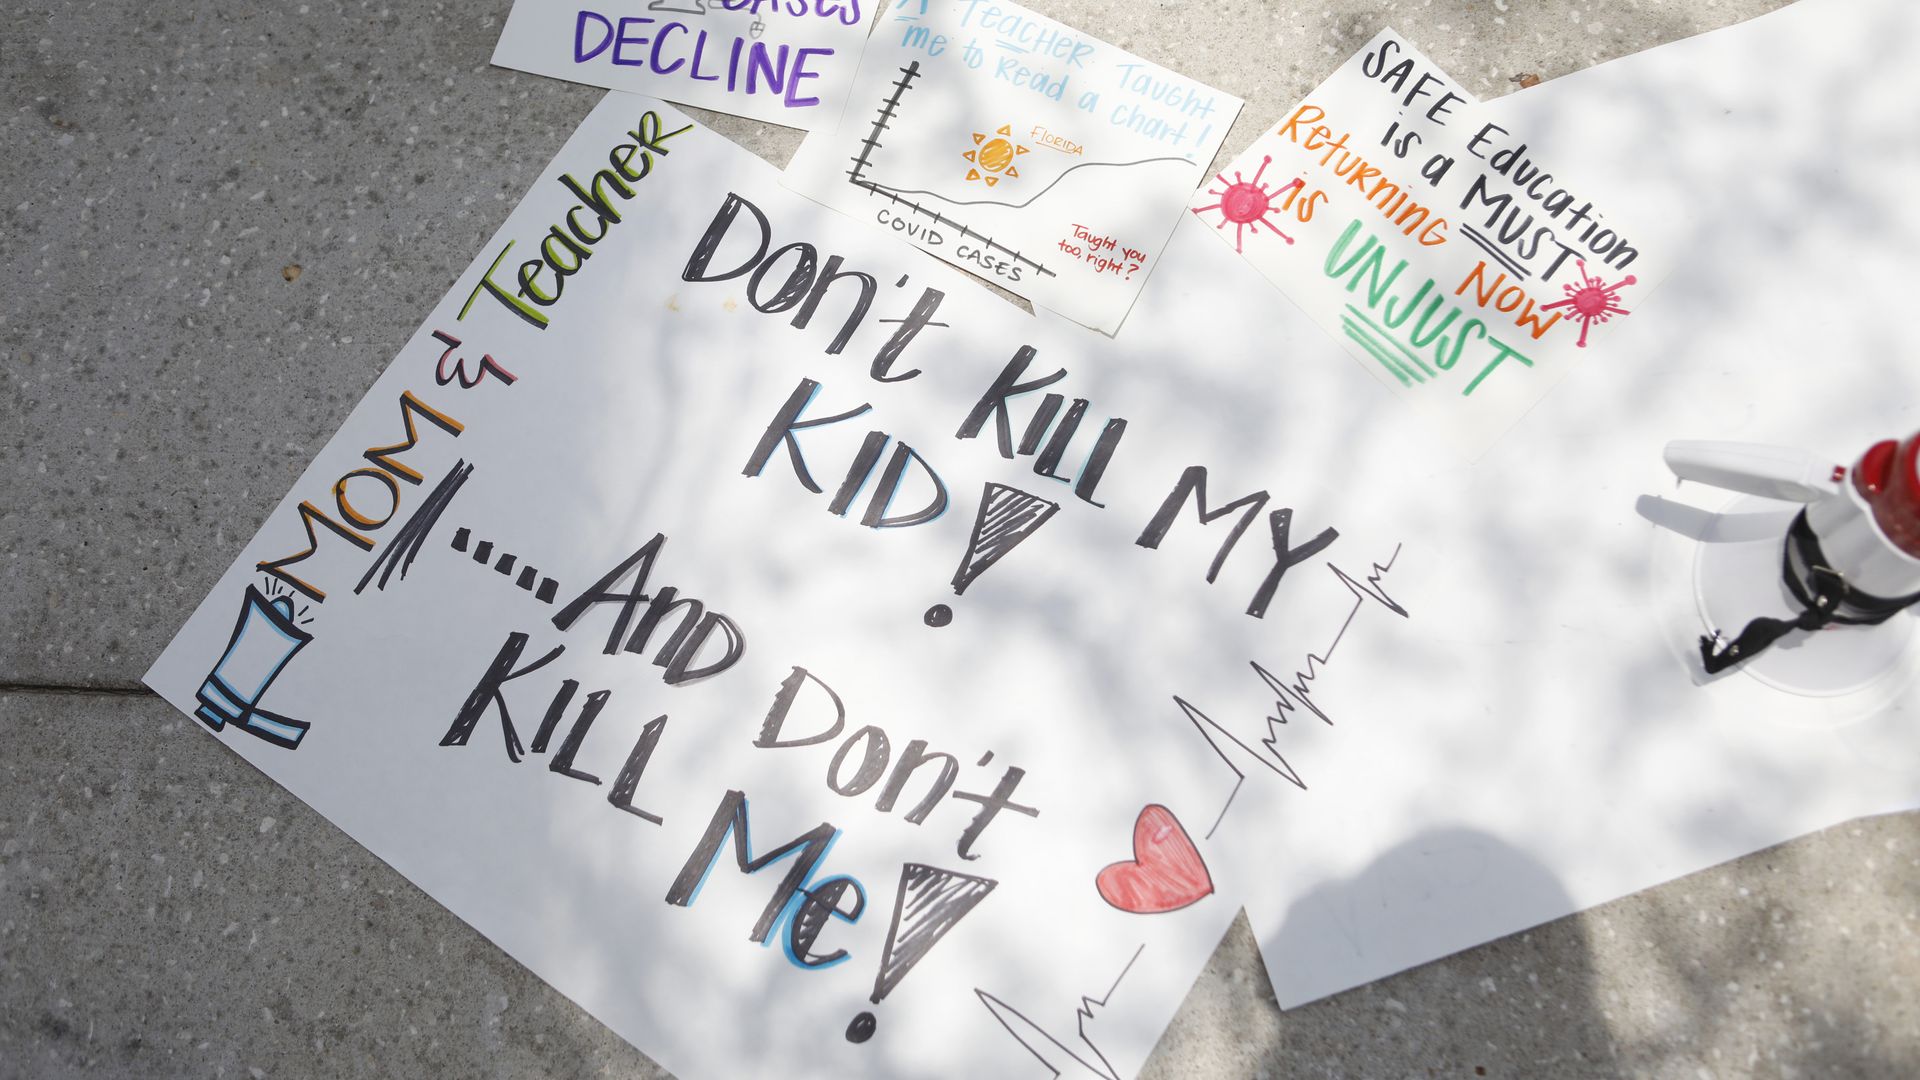 CASES
DECLINE
A Teacher Taught
me to Read a chart!
FLORIDA
COVID CASES
Taught you
too, right?
SAFE Education
is a MUST
Returning NOW
is UNJUST
MOM & Teacher
DON'T KILL MY
KID!
.....And Don't
KILL Me!